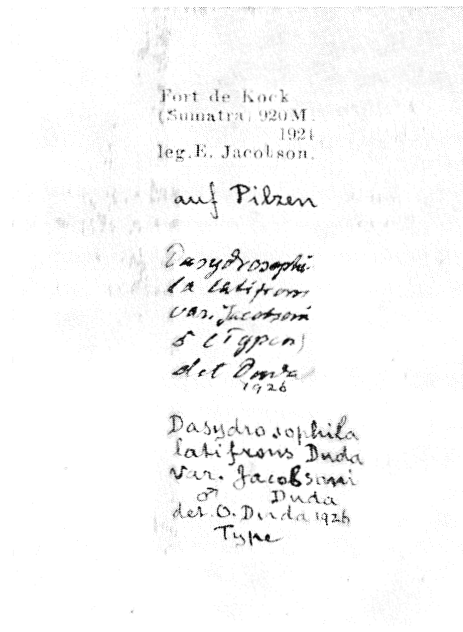 Fort de Kock
(Sumatra) 920 M.
1921
leg. E. Jacobson.
auf Pilzen
Dasydrosophi
la latifrons
var. Jacobsoni
♂ (Typen)
det Duda
1926
Dasydrosophila
latifrons Duda
var. Jacobsoni
♂ Duda
det. O. Duda 1926
Type